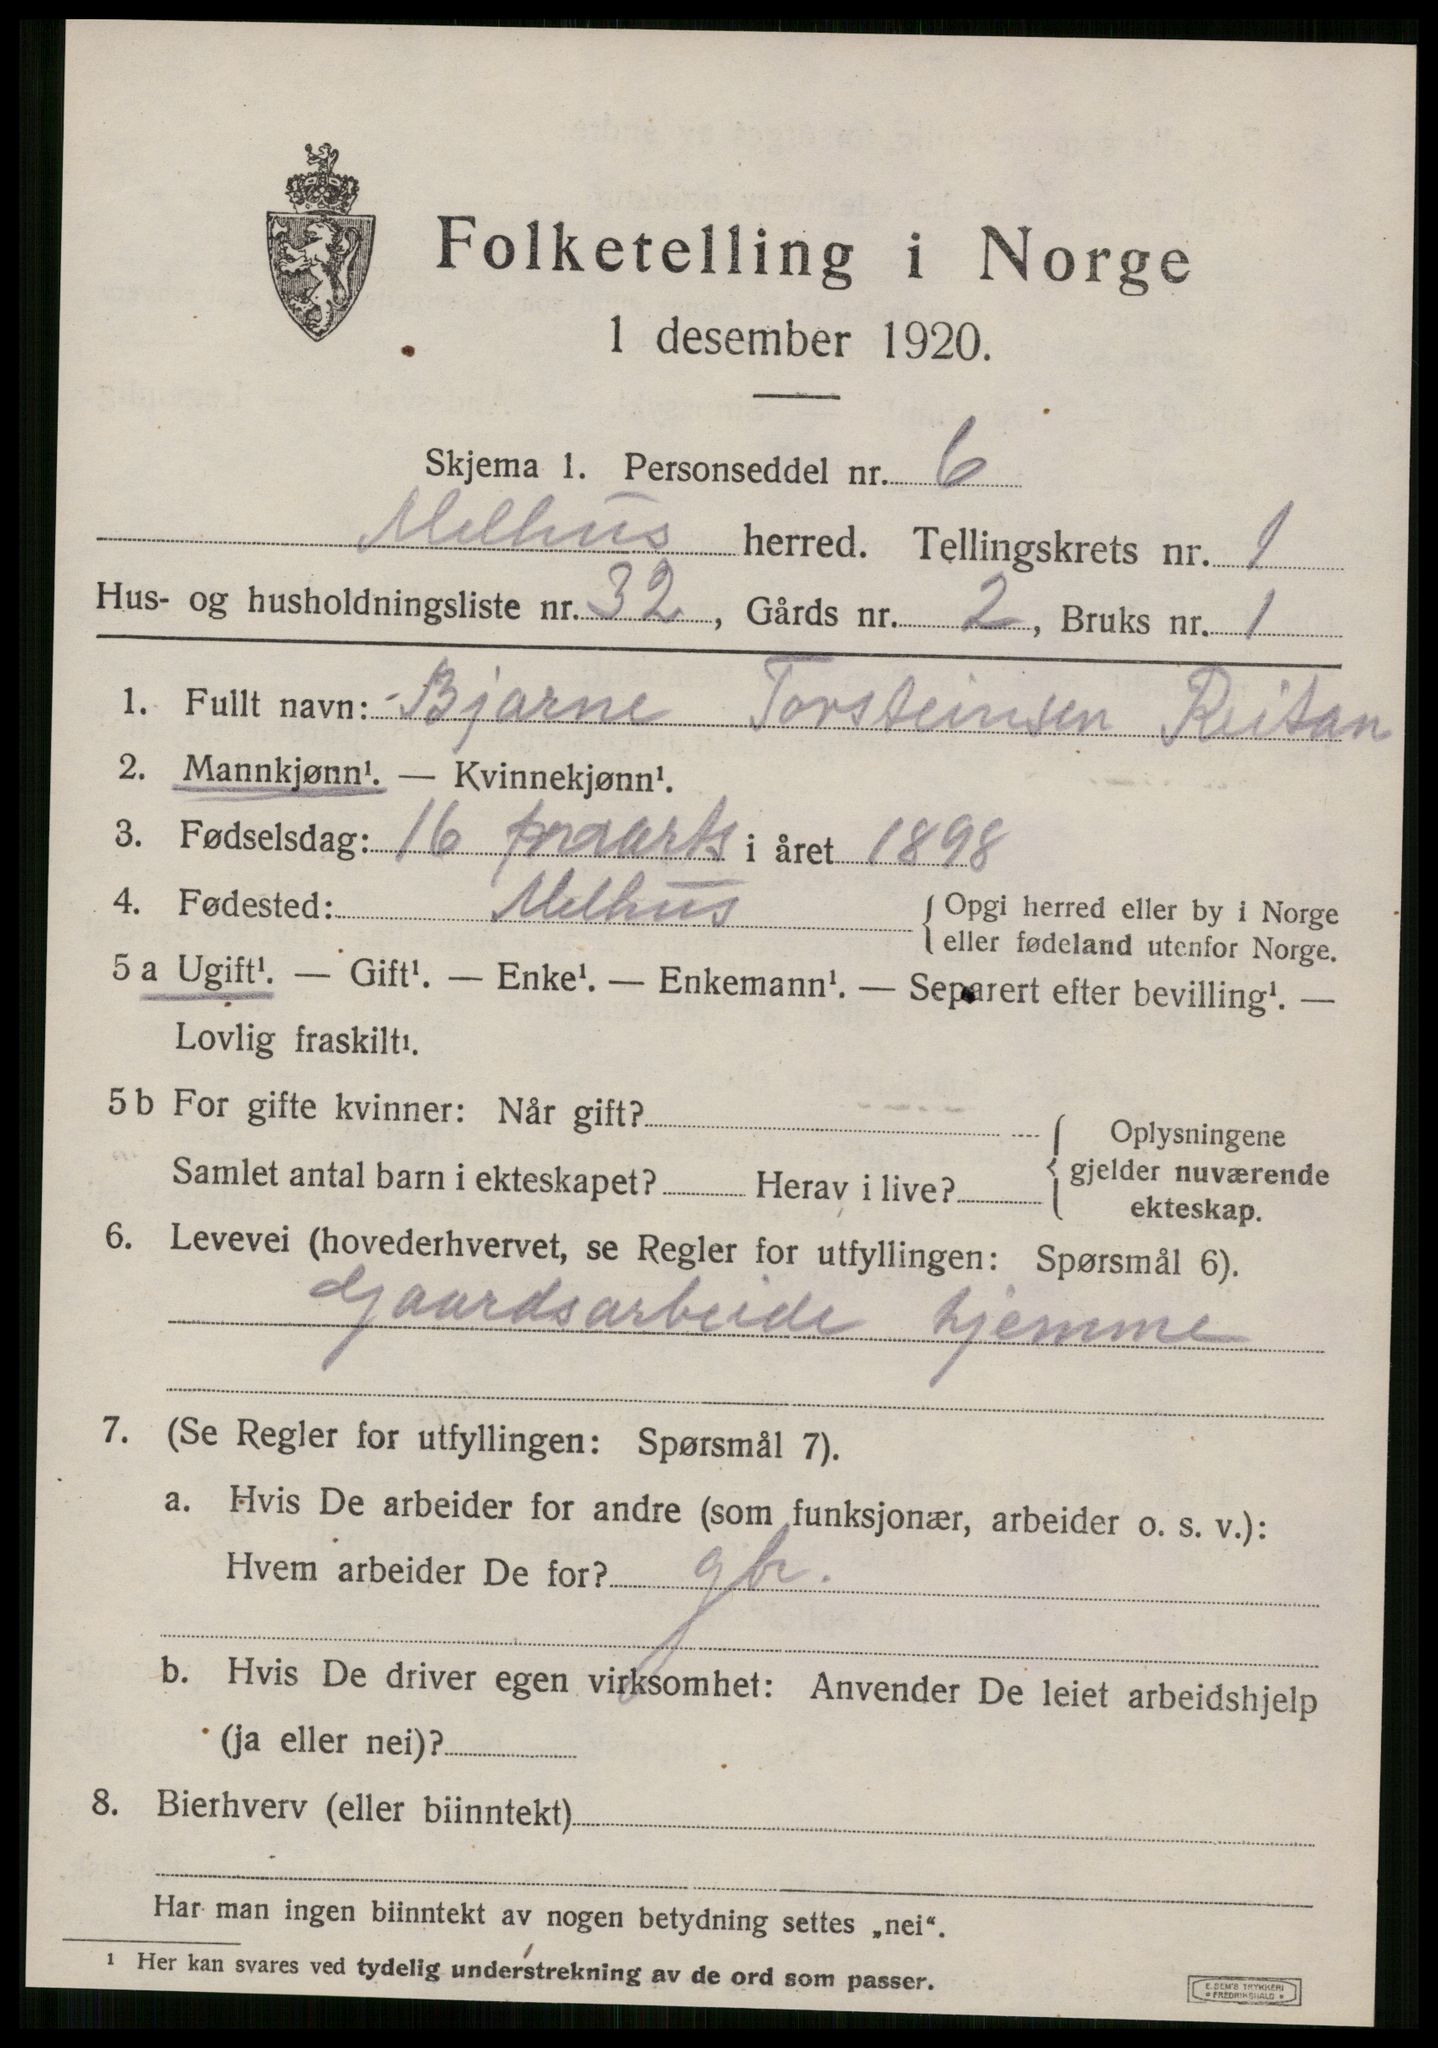 Folketelling i Norge
1 desember 1920.
Skjema 1. Personseddel nr. 6
Melhus herred. Tellingskrets nr. 1
Hus- og husholdningsliste nr. 32, Gårds nr. 2, Bruks nr. 1
1. Fullt navn: Bjarne Torsteinsen Reitan
2. Mannkjønn¹. — Kvinnekjønn¹.
3. Fødselsdag: 16 maarts i året 1898
4. Fødested: Melhus { Opgi herred eller by i Norge
eller fødeland utenfor Norge.
5 a Ugift¹. — Gift¹. — Enke¹. — Enkemann¹. — Separert efter bevilling¹. —
Lovlig fraskilt¹.
5 b For gifte kvinner: Når gift? { Oplysningene
Samlet antal barn i ekteskapet? Herav i live? gjelder nuværende
ekteskap.
6. Levevei (hovederhvervet, se Regler for utfyllingen: Spørsmål 6).
Gaardsarbeide hjemme
7. (Se Regler for utfyllingen: Spørsmål 7).
a. Hvis De arbeider for andre (som funksjonær, arbeider o. s. v.):
Hvem arbeider De for? gbr.
b. Hvis De driver egen virksomhet: Anvender De leiet arbeidshjelp
(ja eller nei)?
8. Bierhverv (eller biinntekt)
Har man ingen biinntekt av nogen betydning settes „nei“.
¹ Her kan svares ved tydelig understrekning av de ord som passer.
E. SEM'S TRYKKERI
FREDRIKSHALD